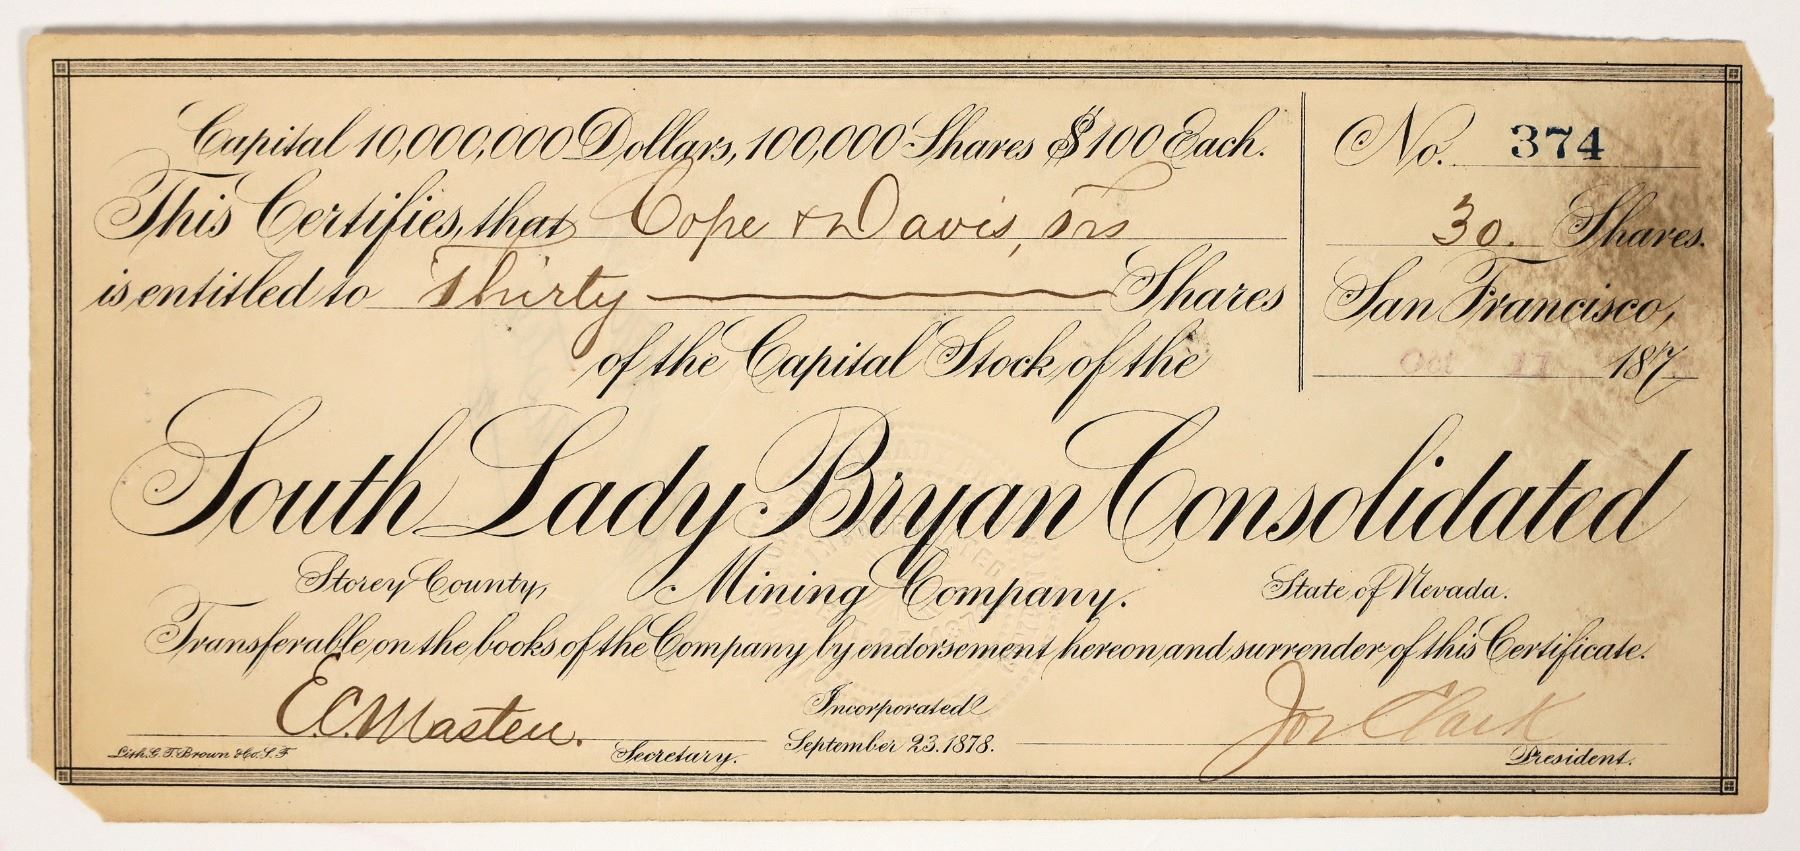 Capital 10,000,000 Dollars, 100,000 Shares $100 Each.
This Certifies, that Cope & Davis, Trs
is entitled to Thirty Shares
of the Capital Stock of the
No. 374
30. Shares.
San Francisco,
Oct 11 187
South Lady Bryan Consolidated
Storey County, Mining Company. State of Nevada.
Transferable on the books of the Company by endorsement hereon and surrender of this Certificate.
E.C. Masten. Secretary.
Incorporated
September 23. 1878.
Jos Clark President.
Lith. G. T. Brown & Co. S. F